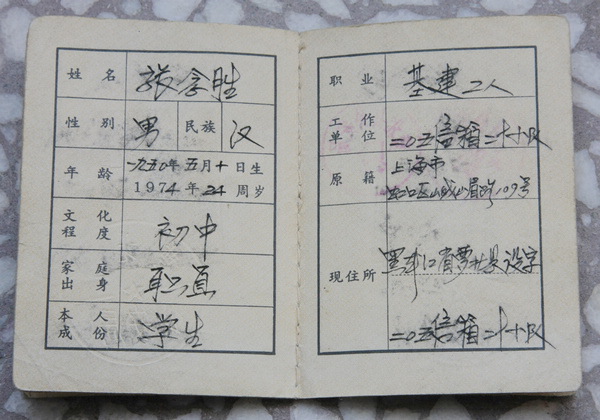 姓名 张念胜
性别 男 民族 汉
年龄 一九五〇年五月十日生
1974年24周岁
文化程度 初中
家庭出身 职员
本人成份 学生
职业 基建工人
工作单位 二〇五信箱二十小队
原籍 上海市
虹口区山 109号
现住所 黑龙江省 县 字
二〇五信箱二十小队